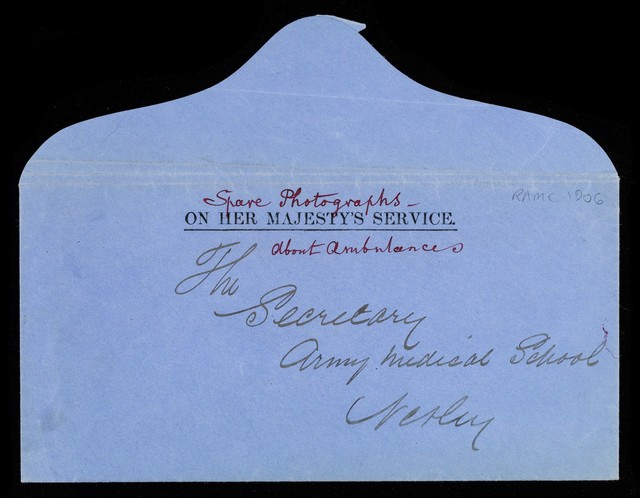 Spare Photographs -
RAMC 1906
ON HER MAJESTY'S SERVICE.
About Ambulances
The
Secretary
Army Medical School
Netley